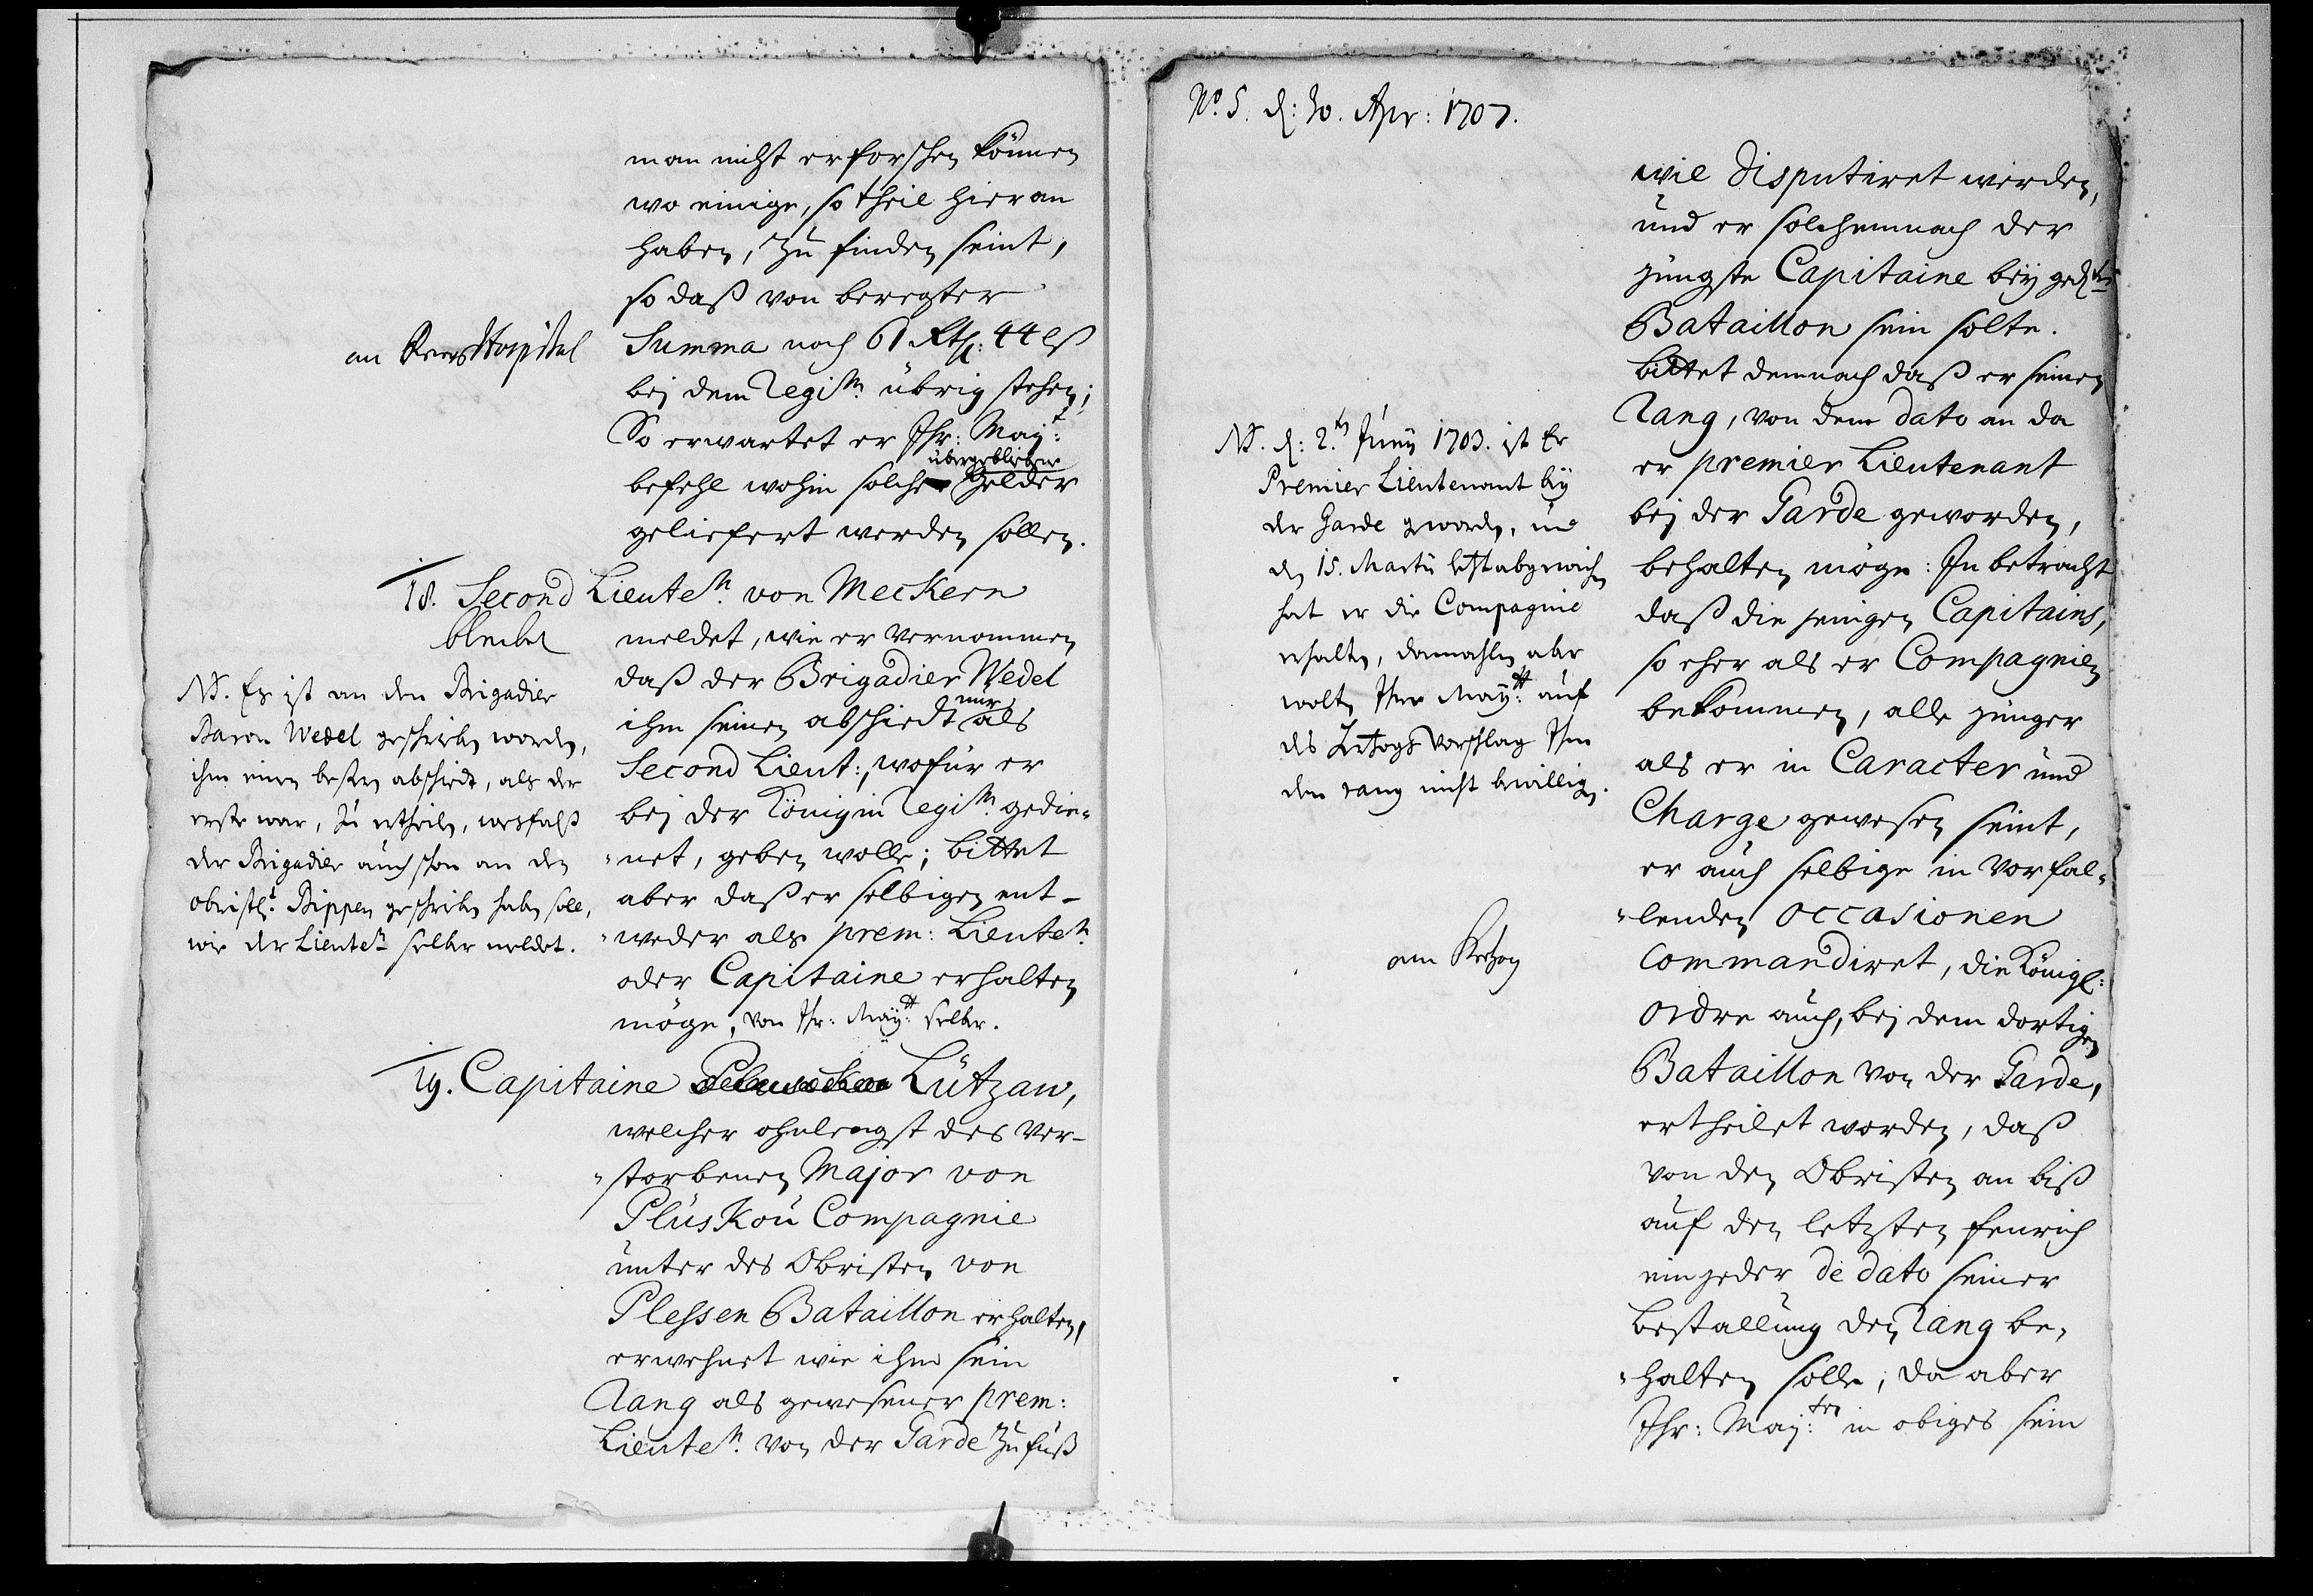 man nicht erforschen können
wo einige, so theil hieran
haben, zu finden seint,
so daß von beregter
an Hospital
Summa noch 61 Rthl: 44 ß
bej dem Regitn. übrig stehen;
So erwartet er Ihr: Mayt:
befehl wohin solche übergebliebene Gelder
geliefert werden sollen.
18. Second Lieuten. von Meckern
bleibet
meldet, wie er vernommen
daß der Brigadier Wedel
ihm seinen abschiedt nur als
Second Lieut:, wofür er
bej der Königin Regitn. gedie-
-net, geben wolle; bittet
aber daß er selbigen ent-
-weder als prem: Lieuten.
oder Capitaine erhalten
möge, von Ihr: Maytt: selber.
NB. Es ist an den Brigadier
Baron Wedel geschrieben worden,
ihm einen besten abschiedt, als der
erste war, zu ertheilen, wesfalß
der Brigadier auch schon an den
obristl. Bippen geschrieben haben soll,
wie der Lieuten selber meldet.
19. Capitaine Lützaw,
welcher ohnlengst des ver-
-storbenen Major von
Plüskoü Compagnie
unter des Obristen von
Plessen Bataillon erhalten,
erwehnet wie ihm sein
Rang als gewesener prem:
Lieuten. von der Garde zu fuß
No. 5. d: 30. Apr: 1707.
wil disputiret werden,
und er solchemnach der
jüngste Capitaine beÿ gedte
Bataillon sein solte.
bittet demnach daß er seinen
Rang, von dem dato an da
er premier Lieutenant
bej der Garde geworden,
behalten möge: In betracht
daß die jenigen Capitains,
so eher als er Compagnien
bekommen, alle jünger
als er in Caracter und
Charge gewesen seint,
er auch selbige in vorfal-
-lenden occasionen
commandiret, die Königl:
ordre auch, bej dem dortigen
Bataillon von der Garde,
ertheilet worden, daß
von den Obristen an biß
auf den letzten fenrich
ein jeder de dato seiner
bestallung den Rang be-
-halten solle; da aber
Ihr: Maj:ten in obiges sein
NB. d: 2.ten Junij 1703. ist Er
Premier Lieutenant beÿ
der Garde geworden, und
den 15. Martij letztabgewichen
hat er die Compagnie
erhalten, damahlen aber
wolten Ihre Maytt: auf
des Hertzogs Vorschlag Ihm
den rang nicht bewilligen.
am Hertzog